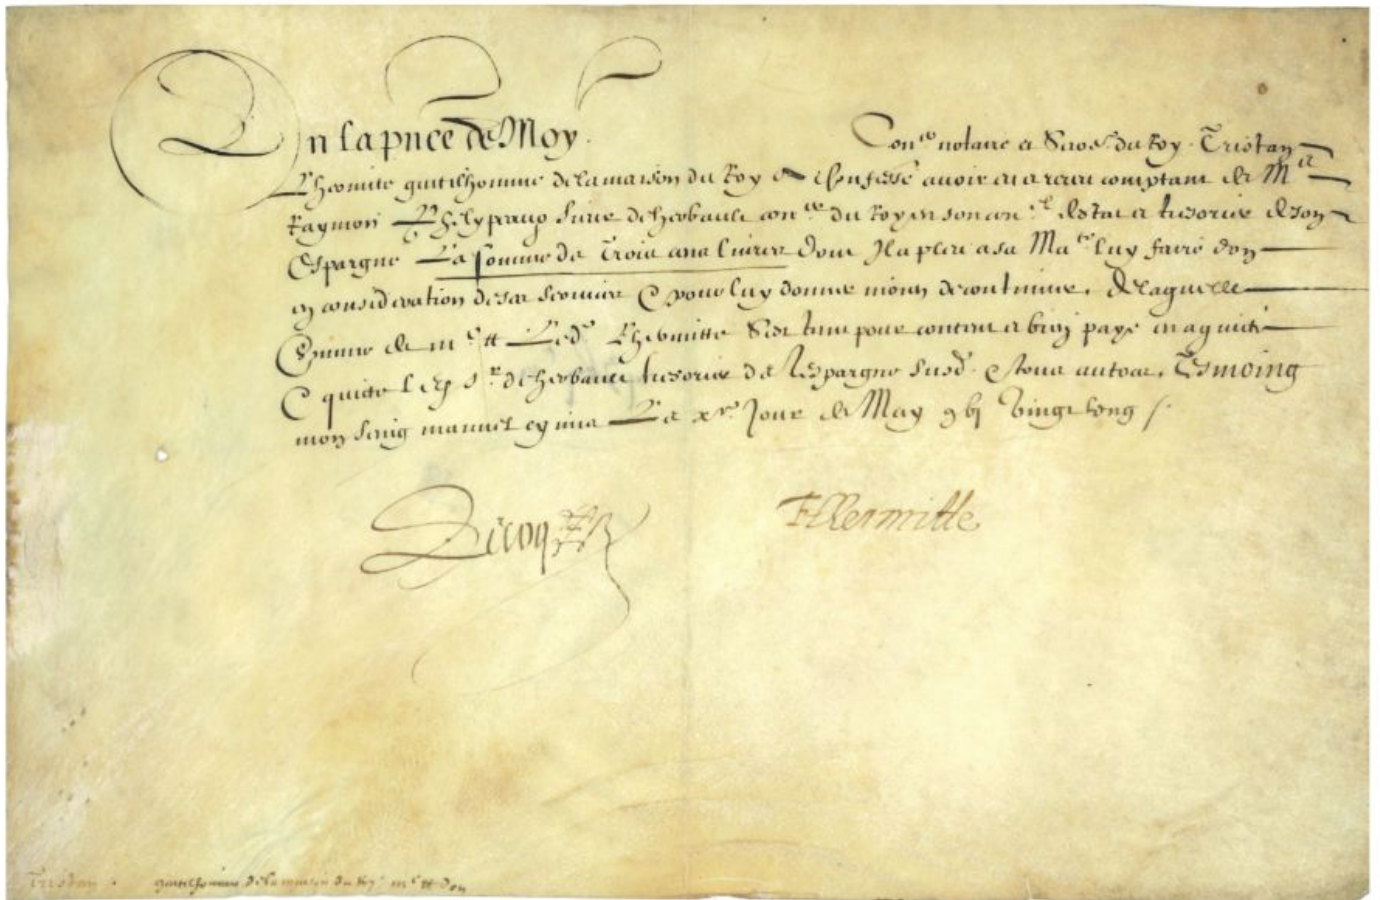 En la pñce de Moy. Con.er notaire et Secre. du Roy. Tristan
Lhermite gentilhomme de la maison du Roy a confessé avoir eu et receu comptant de M.e
Raymon Phelypeaux Sieur de herbault con.er du Roy en son con.el destat et tresorier de son
Espargne La somme de Trois cens livres dont Il a pleu a sa Ma.té luy faire don
en consideration de ses services Et pour luy donner moien de continuer. De laquelle
Somme de iii.c tt Led. Lhermitte Sest tenu pour content et bien payé en a quicté
Et quicte led s.r de herbault tresorier de lespargne susd. Et tous autres. Tesmoing
mon seing manuel cy mis Le Jour de May Vingt Ung
TLhermitte
Tristan gentilhomme de la maison du Roy iii.c tt don